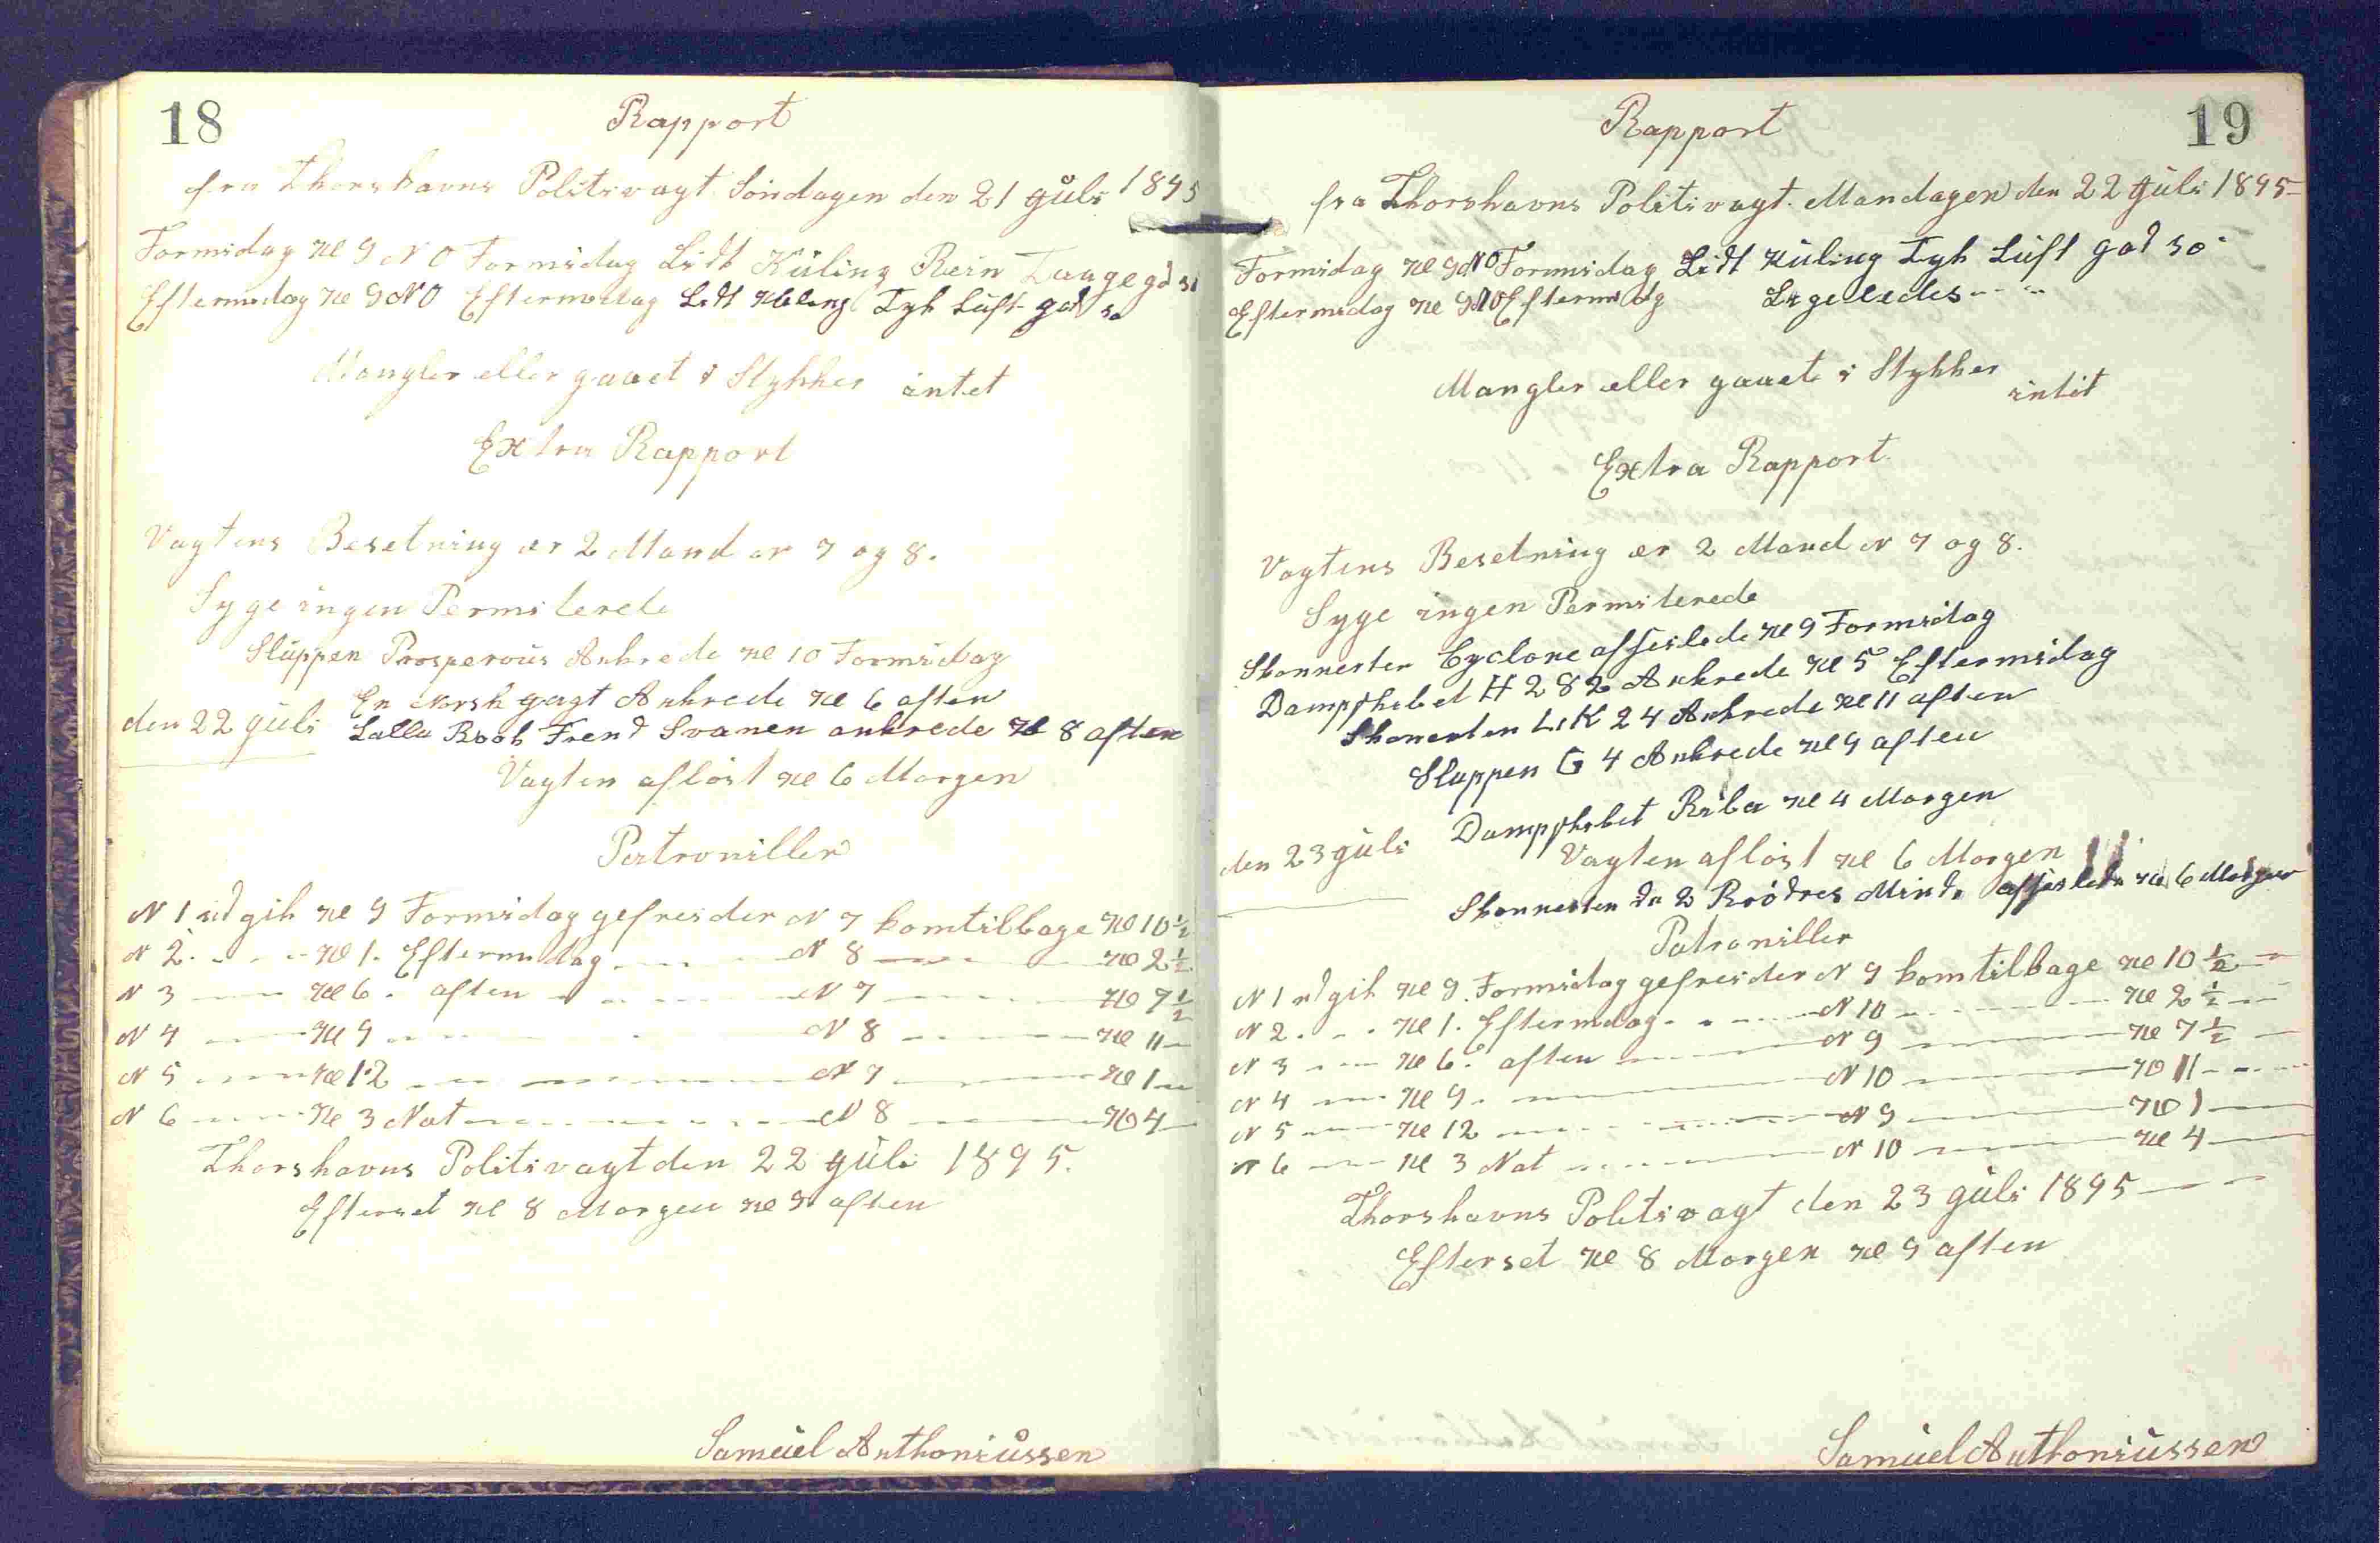 18
Rapport
fra Thorshavns Politivagt Söndagen den 21 Juli 1895
Formidag Kl 9 NO Formidag Lidt Kuling Rein Taage god sö
Eftermidag Kl 9 NO Eftermidag Lidt Kuling Tyk Luft god sö
Mangler eller gaaet i Stykker intet
Extra Rapport
Vagtens Besetning er 2 Mand N 7 og 8.
Syge ingen Permiterede
Sluppen Prosperous Ankrede Kl 10 Formidag
En Norsk Jagt Ankrede Kl 6 aften
den 22 Juli Lalla Rook Frend Svanen ankrede Kl 8 aften
Vagten aflöst Kl 6 Morgen
Patroniller
N 1 udgik Kl 9 Formidag gefreider N 7 komtilbage Kl 10 1/2
N 2 - - - Kl 1. Eftermidag - - - N 8 - - - Kl 2 1/2
N 3 - - - Kl 6. aften - - - N 7 - - - Kl 7 1/2
N 4 - - - Kl 9 - - - N 8 - - - Kl 11 -
N 5 - - - Kl 12 - - - N 7 - - - Kl 1 -
N 6 - - - Kl 3 Nat - - - N 8 - - - Kl 4 -
Thorshavns Politivagt den 22 Juli 1895.
Efterset Kl 8 Morgen Kl 9 aften
Samuel Anthoniussen
19
Rapport
fra Thorshavns Politivagt. Mandagen den 22 Juli 1895-
Formidag Kl 9 NO Formidag Lidt Kuling Tyk Luft god sö
Eftermidag Kl 9 NO Eftermidg Ligeledes - - -
Mangler eller gaaet i Stykker intit
Extra Rapport
Vagtens Besetning er 2 Mand N 7 og 8.
Syge ingen Permiterede
Skonnerten Cyclone afseilede Kl 9 Formidag
Dampskibet H 282 Ankrede Kl 5 Eftermidag
Skonerten L.K 24 Ankrede Kl 11 aften
Sluppen G 4 Ankrede Kl 9 aften
Dampskibet Riba Kl 4 Morgen
den 23 Juli Vagten aflöst Kl 6 Morgen
Skonnerten De 2 Brödres Minde afseilede Kl 6 Morgen
Patroniller
N 1 udgik Kl 9. Formidag gefreider N 9 komtilbage Kl 10 1/2 -
N 2. - - - Kl 1. Eftermidag - - - N 10 - - - Kl 2 1/2 - -
N 3 - - - Kl 6. aften - - - N 9 - - - Kl 7 1/2 -
N 4 - - - Kl 9. - - - N 10 - - - Kl 11 - - -
N 5 - - - Kl 12 - - - N 9 - - - Kl 1 -
N 6 - - - Kl 3 Nat - - - N 10 - - - Kl 4 -
Thorshavns Politivagt den 23 Juli 1895 - -
Efterset Kl 8 Morgen Kl 9 aften
Samuel Anthoniussen